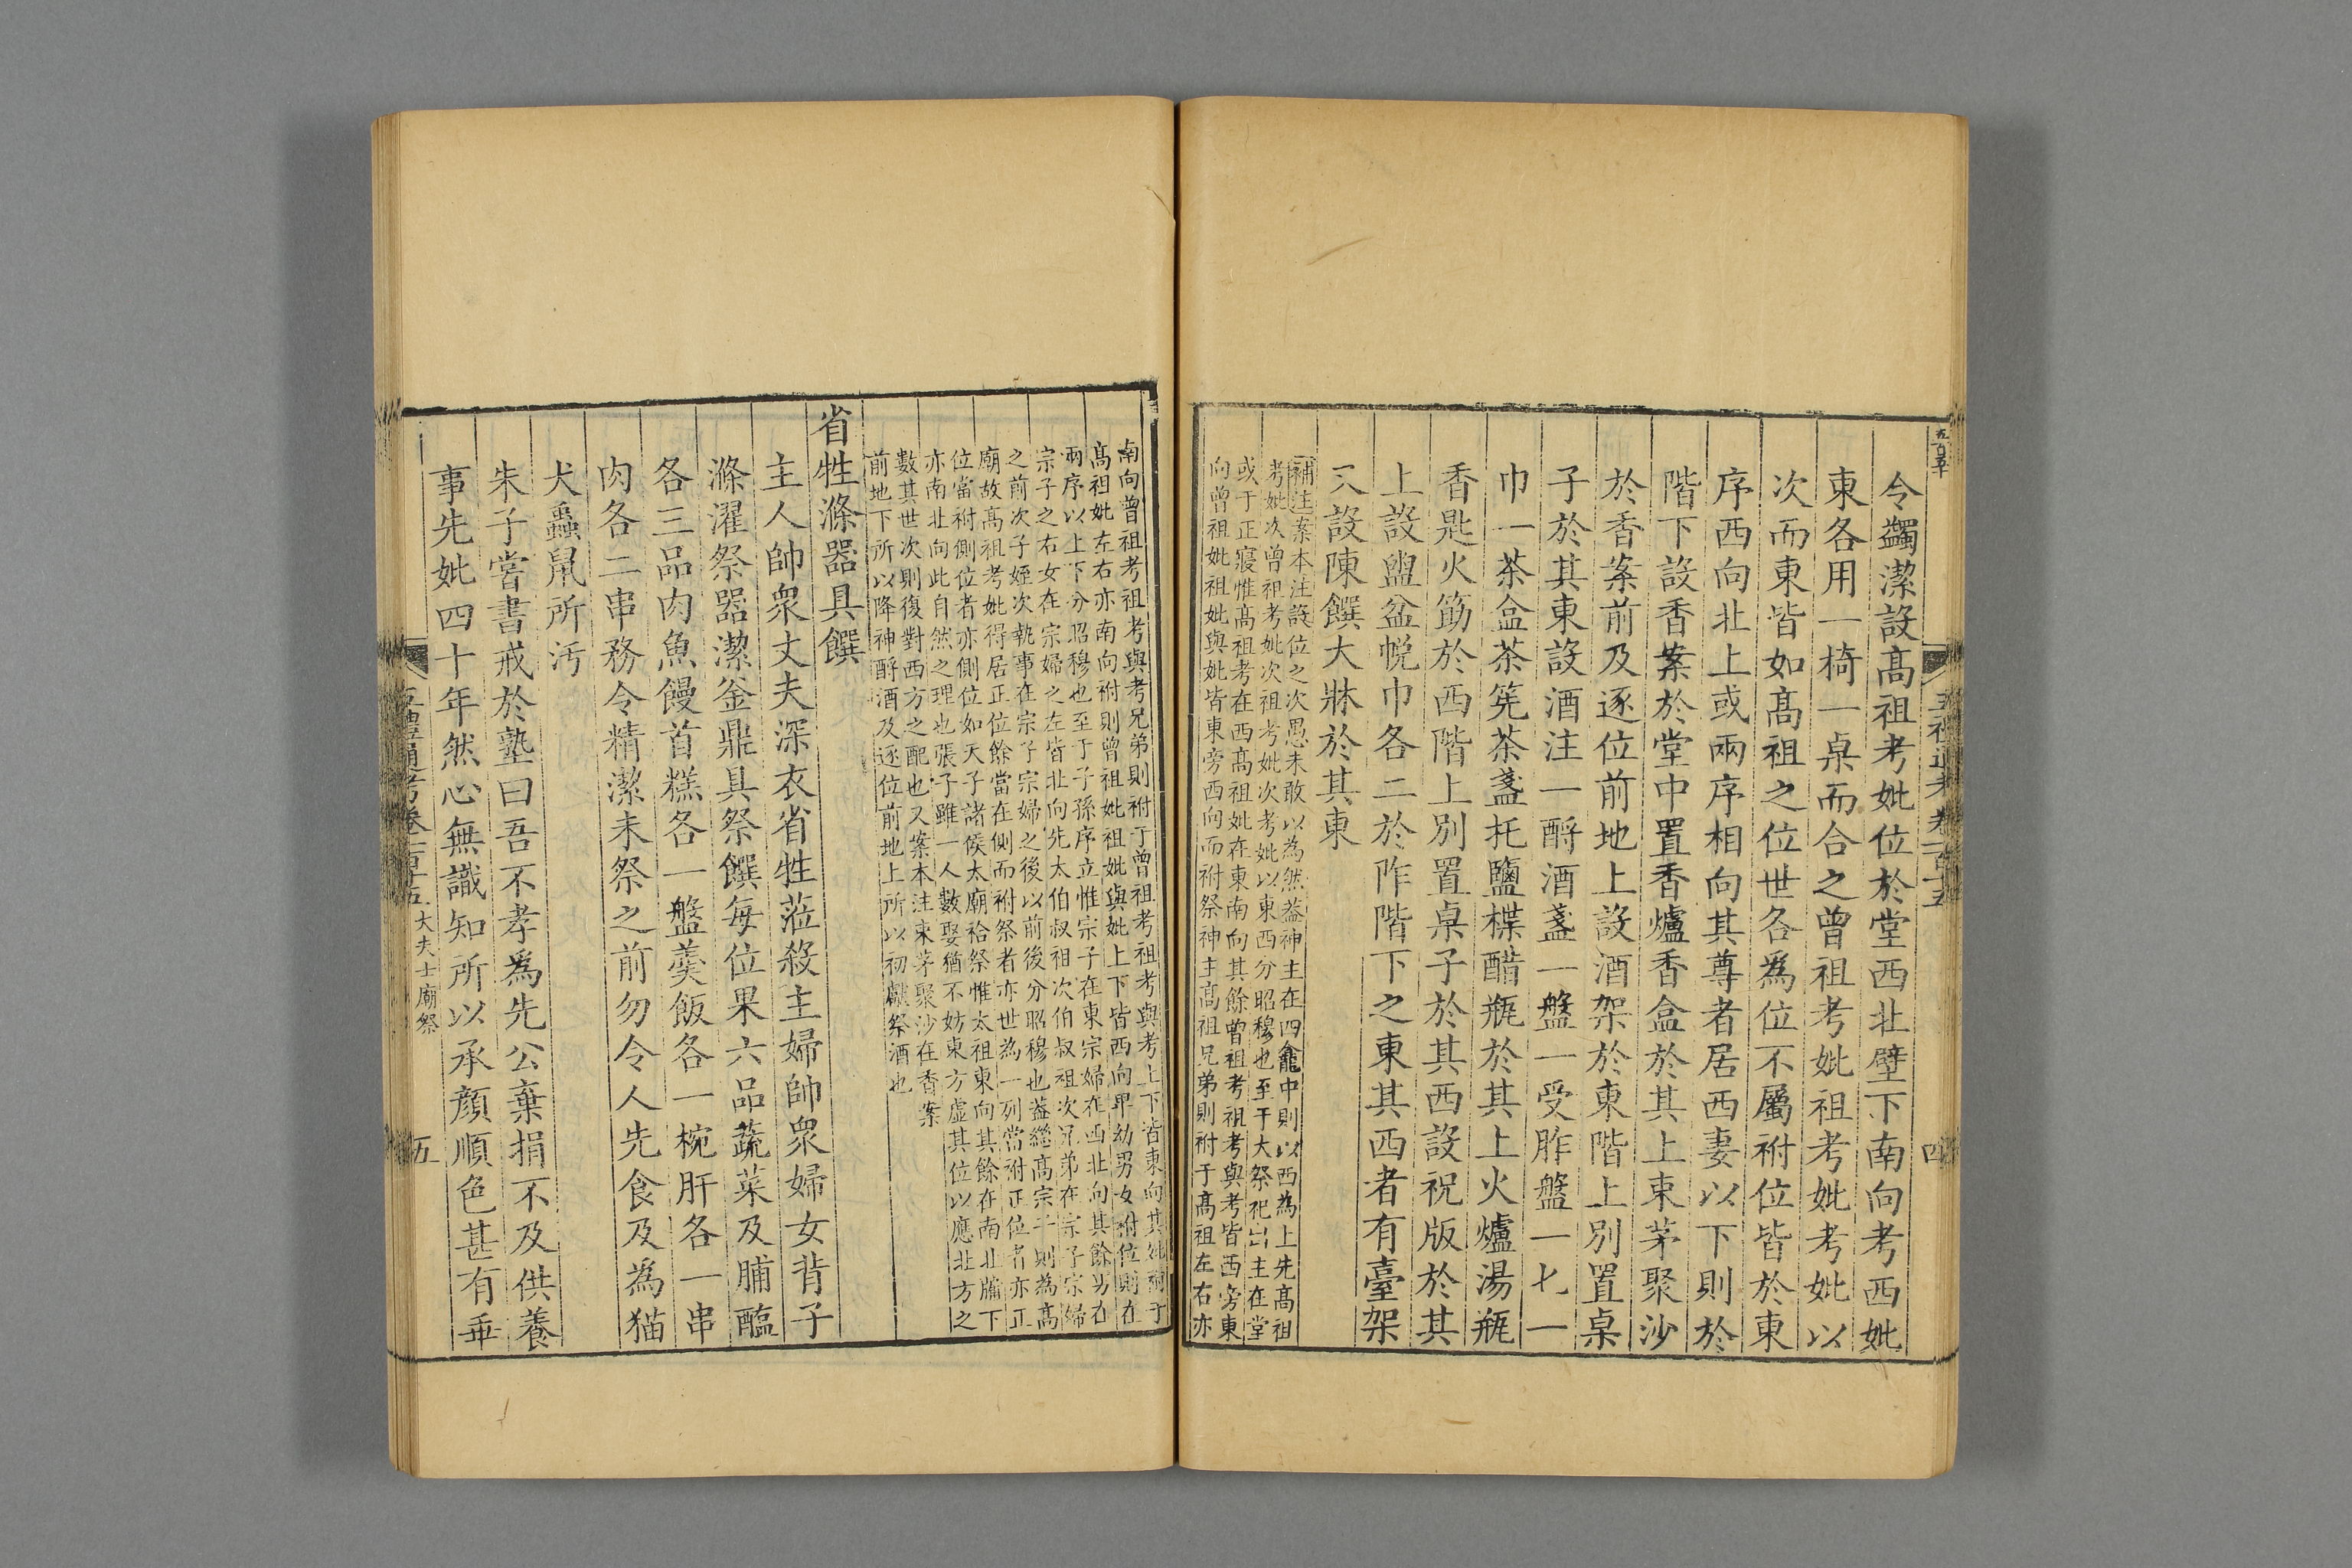 令蠲潔設髙祖考妣位於堂西北壁下南向考西妣
東各用一椅一桌而合之曾祖考妣祖考妣考妣以
次而東皆如髙祖之位世各為位不屬祔位皆於東
序西向北上或兩序相向其尊者居西妻以下則於
階下設香案於堂中置香爐香盒於其上束茅聚沙
於香案前及逐位前地上設酒架於東階上別置桌
子於其東設酒注一酹酒盞一盤一受胙盤一匕一
巾一茶盒茶筅茶盞托鹽楪醋瓶於其上火爐湯瓶
香匙火筯於西階上別置桌子於其西設祝版於其
上設盥盆帨巾各二於阼階下之東其西者有臺架
又設陳饌大牀於其東
補注案本注設位之次愚未敢以為然葢神主在四龕中則以西為上先髙祖
考妣次曾祖考妣次祖考妣次考妣以東西分昭穆也至于大祭祀出主在堂
或于正寢惟髙祖考在西髙祖妣在東南向其餘曾祖考祖考與考皆西旁東
向曾祖妣祖妣與妣皆東旁西向而祔祭神主髙祖兄弟則祔于髙祖左右亦
南向曾祖考祖考與考兄弟則祔于曾祖考祖考與考上下皆東向其妣祔于
髙祖妣左右亦南向祔則曾祖妣祖妣與妣上下皆西向卑幼男女祔位則在
兩序以上下分昭穆也至于子孫序立惟宗子在東宗婦在西北向其餘男在
宗子之右女在宗婦之左皆北向先太伯叔祖次伯叔祖次兄弟在宗子宗婦
之前次子姪次執事在宗子宗婦之後以前後分昭穆也葢繼髙宗子則為髙
廟故髙祖考妣得居正位餘當在側而祔祭者亦世為一列當祔正位者亦正
位當祔側位者亦側位如天子諸侯太廟祫祭惟太祖東向其餘在南北牖下
亦南北向此自然之理也張子雖一人數娶猶不妨東方虛其位以應北方之
數其世次則復對西方之配也又案本注束茅聚沙在香案
前地下所以降神酹酒及逐位前地上所以初獻祭酒也
省牲滌器具饌
主人帥衆丈夫深衣省牲蒞殺主婦帥衆婦女背子
滌濯祭器潔釡鼎具祭饌每位果六品蔬菜及脯醢
各三品肉魚饅首糕各一盤羮飯各一椀肝各一串
肉各二串務令精潔未祭之前勿令人先食及為猫
犬蟲䑕所汚
朱子嘗書戒於塾曰吾不孝為先公棄捐不及供養
事先妣四十年然心無識知所以承顔順色甚有乖
五禮通考卷一百十五 大夫士廟祭 五